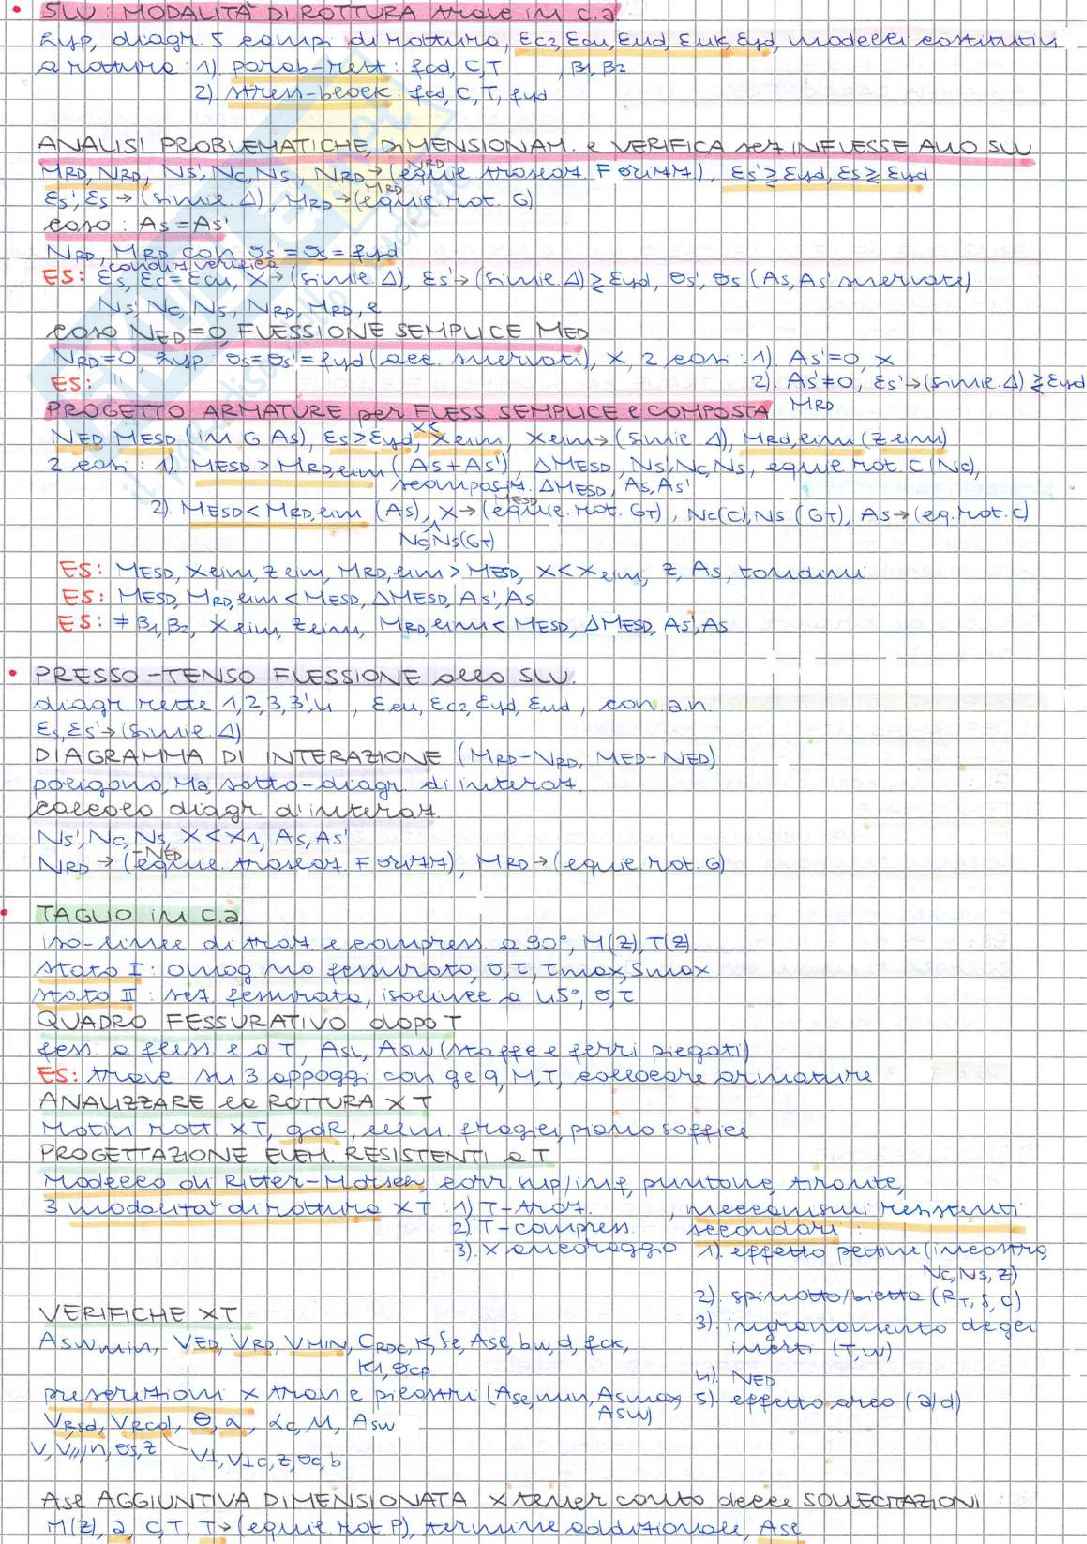 • SLU: MODALITÀ DI ROTTURA trave in c.a
hyp, diagr. 5 camp. di rottura, Ec2, Ecu, Eud, Euk, Eyd, modelli costitutivi
a rottura: 1) parab-rett: fcd, C, T , B1, B2
2) stress-block: fcd, C, T, fyd
ANALISI PROBLEMATICHE, DIMENSIONAM. e VERIFICA sez INFLESSE ALLO SLU
MRD, NRD, Ns', Nc, Ns, NRD→(equil traslaz. F orizz), Es'≥Eyd, Es≥Eyd
Es', Es→(simil. Δ), MRD→(equil. rot. G)
caso: As=As'
NRD, MRD con σs = σs' = fyd
condiz verifica
ES: Es, Ec=Ecu, X→(simil. Δ), Es'→(simil. Δ)≥Eyd, σs', σs (As, As' snervate)
Ns', Nc, Ns, NRD, MRD, e
caso NED=0, FLESSIONE SEMPLICE MED
NRD=0, hyp: σs=σs'=fyd (acc. snervati), x, 2 casi: 1). As'=0, x
ES: " 2). As'≠0, Es'→(simil. Δ)≥Eyd
MRD
PROGETTO ARMATURE per FLESS. SEMPLICE e COMPOSTA
NED, MESD (in G As), Es>Eyd, x<xlim, xlim→(simil Δ), MRd,lim (zlim)
2 casi: 1). MESD > MRD,lim (As+As'), ΔMESD, Ns', Nc, Ns, equil rot. C (Nc),
scomposiz. ΔMESD, As, As'
2) MESD < MRD,lim (As), x→(equil. rot. GT), Nc(C), Ns (GT), As→(eq. rot. C)
Nc, Ns(GT)
ES: MESD, xlim, zlim, MRD,lim > MESD, x<xlim, z, As, tondini
ES: MESD, MRD,lim < MESD, ΔMESD, As', As
ES: ≠ B1, B2, xlim, zlim, MRD,lim < MESD, ΔMESD, As', As
• PRESSO-TENSO FLESSIONE allo SLU.
diagr rette 1, 2, 3, 3', 4 , Ecu, Ec2, Eyd, Eud, con a.n
Es, Es'→(simil. Δ)
DIAGRAMMA DI INTERAZIONE (MRD-NRD, MED-NED)
poligono, Ma, sotto-diagr. di interaz.
calcolo diagr d'interaz.
Ns', Nc, Ns, X<X1, As, As'
NRD→(equil. traslaz. F orizz), MRD→(equil rot. G)
• TAGLIO in c.a
iso-linee di traz e compress a 90°, M(z), T(z).
stato I: omog no fessurato, σ, τ, τmax, Smax
stato II: sez fessurata, isolinee a 45°, σ, τ
QUADRO FESSURATIVO dopo T
fess a fless e a T, Asl, Asw (staffe e ferri piegati)
ES: trave su 3 appoggi con g e q, M, T, collocare armature
ANALIZZARE la ROTTURA x T
Motivi rott xT, gdR, elem. fragili, piano soffice
PROGETTAZIONE ELEM. RESISTENTI a T
Modello di Ritter-Mörsch, corr sup/inf, puntone, tirante,
3 modalità di rottura xT: 1) T-traz. , meccanismi resistenti
2) T-compress. secondari:
3). x ancoraggio 1). effetto pettine (incastro,
Nc, Ns, z)
2). spinotto/bietta (RT, s, c)
VERIFICHE xT
3). ingranamento degli
inerti (T, w)
Asw,min, VED, VRD, VMIN, CRDC, K, ρl, Asl, bw, d, fck,
K1, σcp
4). NED
prescrizioni x travi e pilastri (Asl,min, Asmax, 5). effetto arco (a/d)
Asw)
VRsd, VRcd, θ, α, αc, M, Asw
V, V//, n, σs, z V⊥, V⊥c, z, σc, b
Asl AGGIUNTIVA DIMENSIONATA x tener conto delle SOLLECITAZIONI
M(z), a, C, T, T→(equil rot P), termine addizionale, Asl